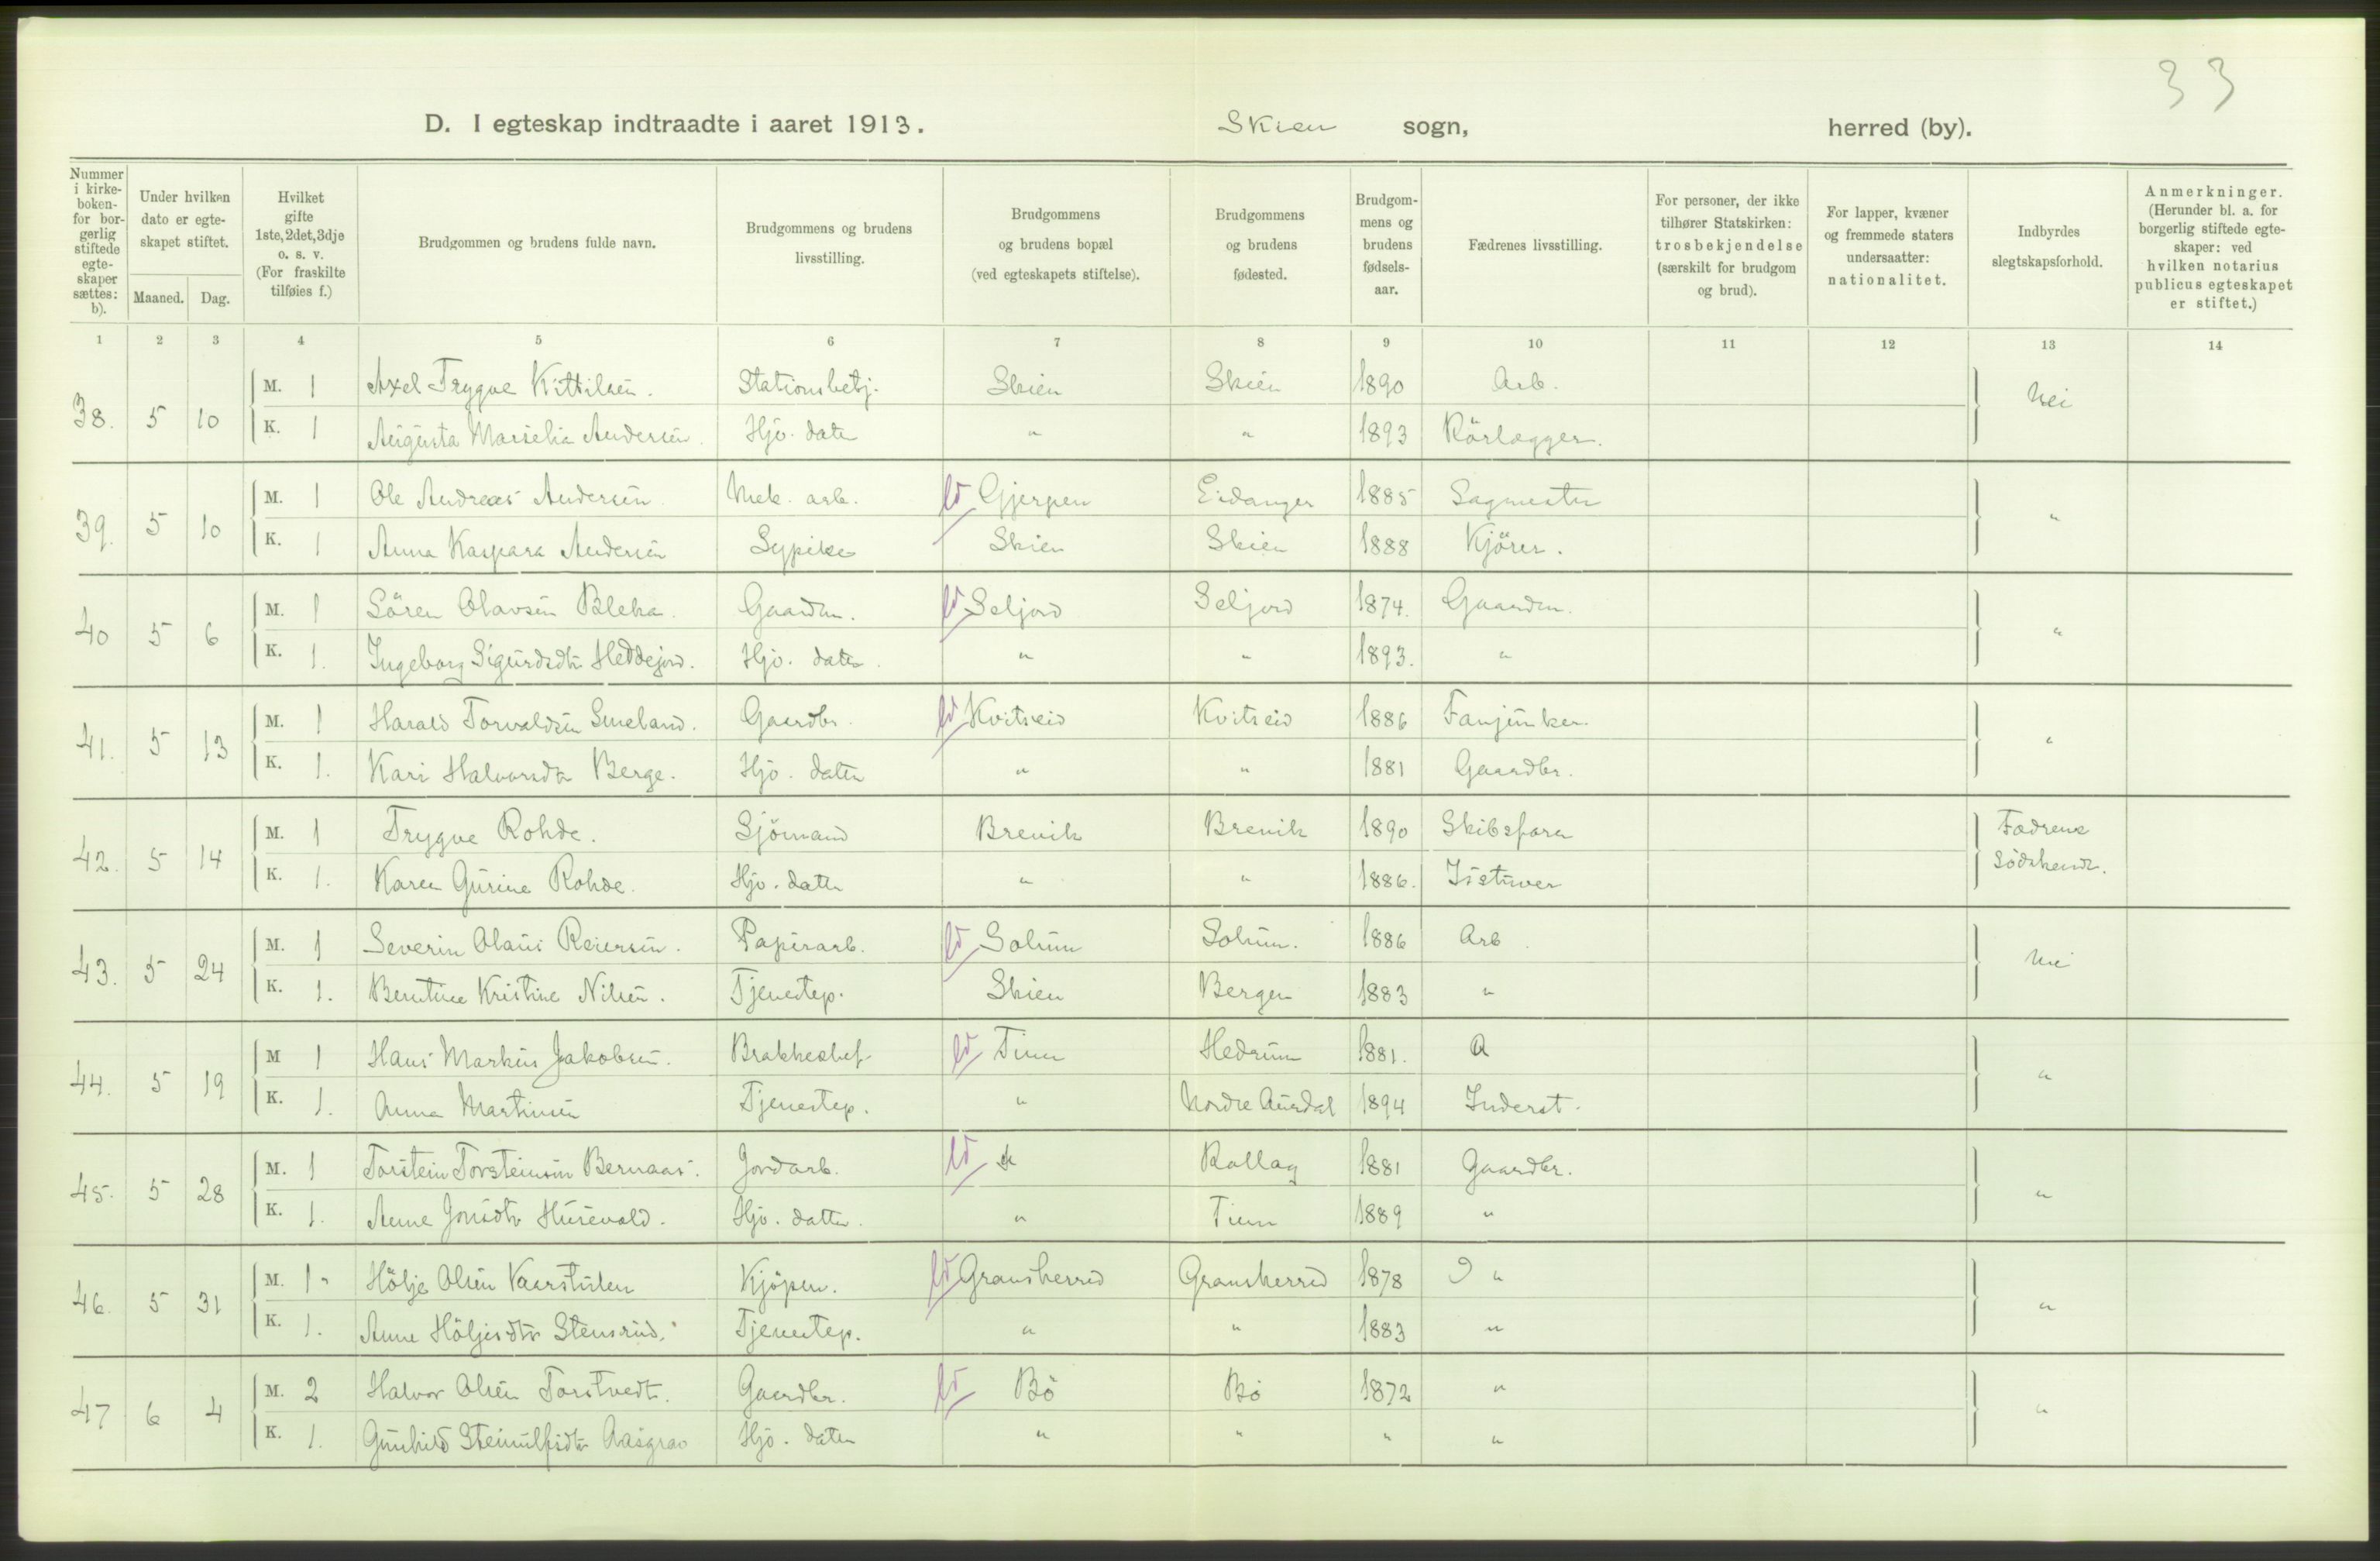 33
D. I egteskap indtraadte i aaret 1913. Skien sogn, herred (by).
Nummer i kirke-boken- for bor-gerlig stiftede egte-skaper sættes: b).
Under hvilken dato er egte-skapet stiftet.
Maaned. Dag.
Hvilket gifte 1ste, 2det, 3dje o. s. v. (For fraskilte tilføies f.)
Brudgommen og brudens fulde navn.
Brudgommens og brudens livsstilling.
Brudgommens og brudens bopæl (ved egteskapets stiftelse).
Brudgommens og brudens fødested.
Brudgom-mens og brudens fødsels-aar.
Fædrenes livsstilling.
For personer, der ikke tilhører Statskirken: trosbekjendelse (særskilt for brudgom og brud).
For lapper, kvæner og fremmede staters undersaatter: nationalitet.
Indbyrdes slegtskapsforhold.
Anmerkninger. (Herunder bl. a. for borgerlig stiftede egte-skaper: ved hvilken notarius publicus egteskapet er stiftet.)
1 2 3 4 5 6 7 8 9 10 11 12 13 14
38. 5 10 M. 1 Axel Trygve Kittilsen. Stationsbetj. Skien Skien 1890 Arb. Nei
K. 1 Augusta Marselia Andersen. Hjv. datter " " 1893 Rörlægger.
39. 5 10 M. 1 Ole Andreas Andersen. Mek. arb. ld Gjerpen Eidanger 1885 Sagmester "
K. 1 Anna Kaspara Andersen Sypike Skien Skien 1888 Kjörer.
40 5 6 M. 1 Sören Olavsen Bleka. Gaardm. ld Seljord Seljord 1874. Gaardm. "
K. 1. Ingeborg Sigurdsdtr Heddejord. Hjv. datter. " " 1893. "
41. 5 13 M. 1 Harald Torvaldsen Smeland. Gaardbr. ld Kvitseid Kvitseid 1886 Fanjunker "
K. 1. Kari Halvorsdtr Berge. Hjv. datter " " 1881 Gaardbr.
42. 5 14 M. 1 Trygve Rohde. Sjömand Brevik Brevik 1890 Skibsförer Fædrene
K. 1. Karen Gurine Rohde. Hjv. datter " " 1886. Istuver södskend.
43. 5 24 M. 1 Severin Olaus Reiersen. Papirarb. ld Solum Solum. 1886 Arb. Nei
K. 1. Berntine Kristine Nilsen. Tjenestep. Skien Bergen 1883 "
44. 5 19 M 1 Hans Markus Jakobsen. Brakkechef ld Tinn Hedrum 1881. A "
K. 1. Anna Martinsen Tjenestep. " Nordre Aurdal 1894 Inderst.
45. 5 28 M. 1 Torstein Torsteinsen Bernaas. Jordarb. ld " Rollag 1881 Gaardbr. "
K. 1. Anne Jonsdtr Husevold. Hjv. datter. " Tinn 1889 "
46. 5 31 M. 1 " Hölje Olsen Vaarstulen Kjöpm. ld Gransherred Gransherred 1878 " "
K. 1. Anne Höljesdtr Stensrud. Tjenestep. " " 1883 "
47 6 4 M. 2 Halvor Olsen Torstvedt. Gaardbr. ld Bö Bö 1872 " "
K. 1. Gunhild Steinulfsdtr Aasgrav Hjv. datter " " " "